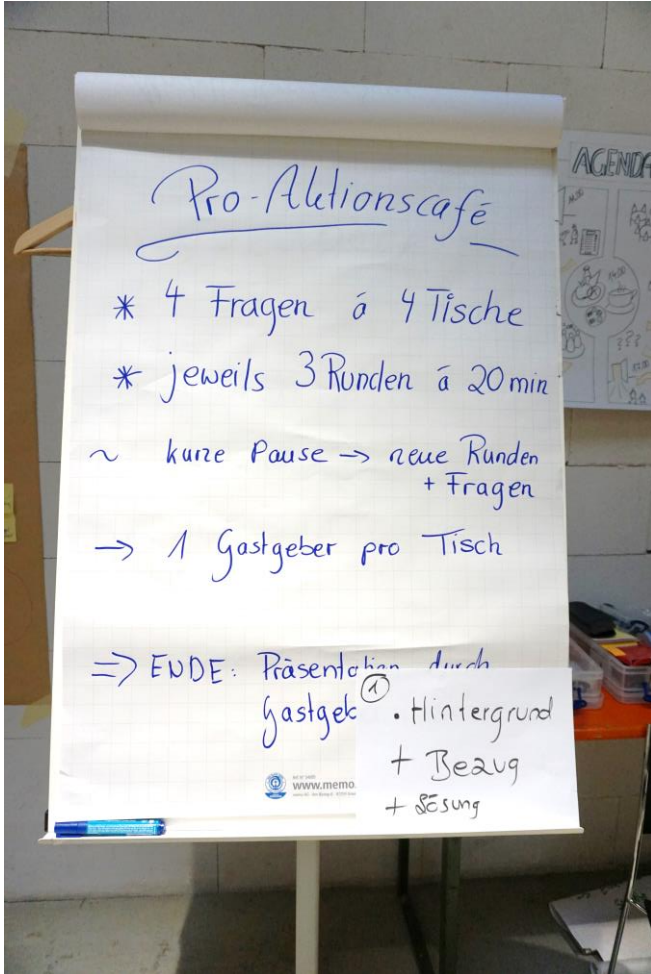 Pro-Aktionscafé
* 4 Fragen á 4 Tische
* jeweils 3 Runden á 20 min
~ kurze Pause → neue Runden
+ Fragen
→ 1 Gastgeber pro Tisch
⇒ ENDE: Präsentation durch
Gastgeb
www.memo.
① . Hintergrund
+ Bezug
+ Lösung
AGENDA
???